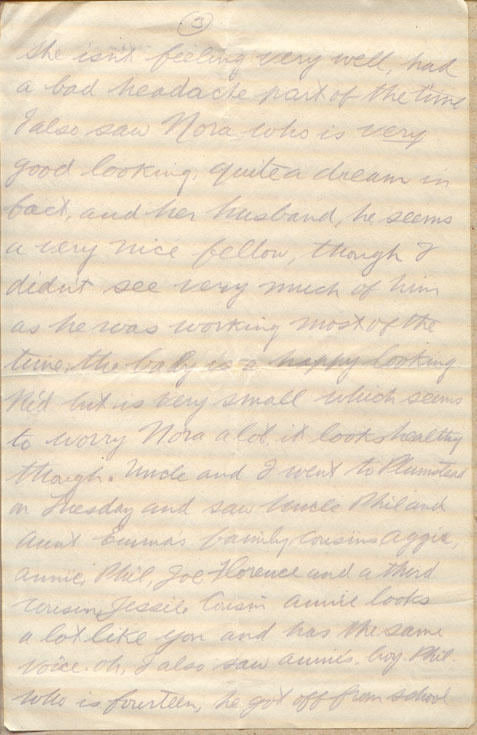 3
she isn't feeling very well, had
a bad headache part of the time
I also saw Nora who is very
good looking, quite a dream in
fact, and her husband, he seems
a very nice fellow, though I
didn't see very much of him
as he was working most of the
time. the baby is a happy looking
kid but is very small which seems
to worry Nora a lot, it looks healthy
though. Uncle and I went to Plumstead
on Tuesday and saw Uncle Phil and
Aunt Emma's family, cousins Aggie,
Annie, Phil, Joe Florence and a third
cousin, Jessie. Cousin Annie looks
a lot like you and has the same
voice. oh, I also saw Annie's boy Phil
who is fourteen, he got off from school